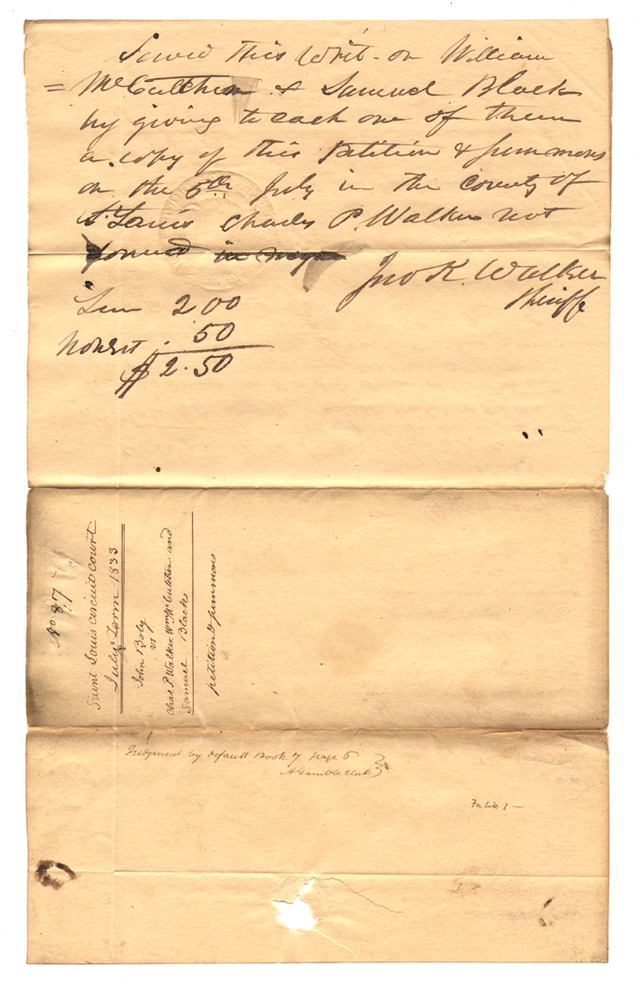 Served this Writ on William
= McCutchen & Samuel Black
by giving to each one of them
a copy of this Petition & Summons
on the 5th July in the county of
St Louis Charles P. Walker not
found in my
Jno K. Walker
Sheriff
Serv 2 00
Non Est . 50
$ 2.50
No 87
Saint Louis circuit court
July Term 1833
John Boly
vs
Chas P Walker Wm McCutchen and
Samuel Black
petition & summons
Judgment by default Book 7 page 6
A Gamble clerk